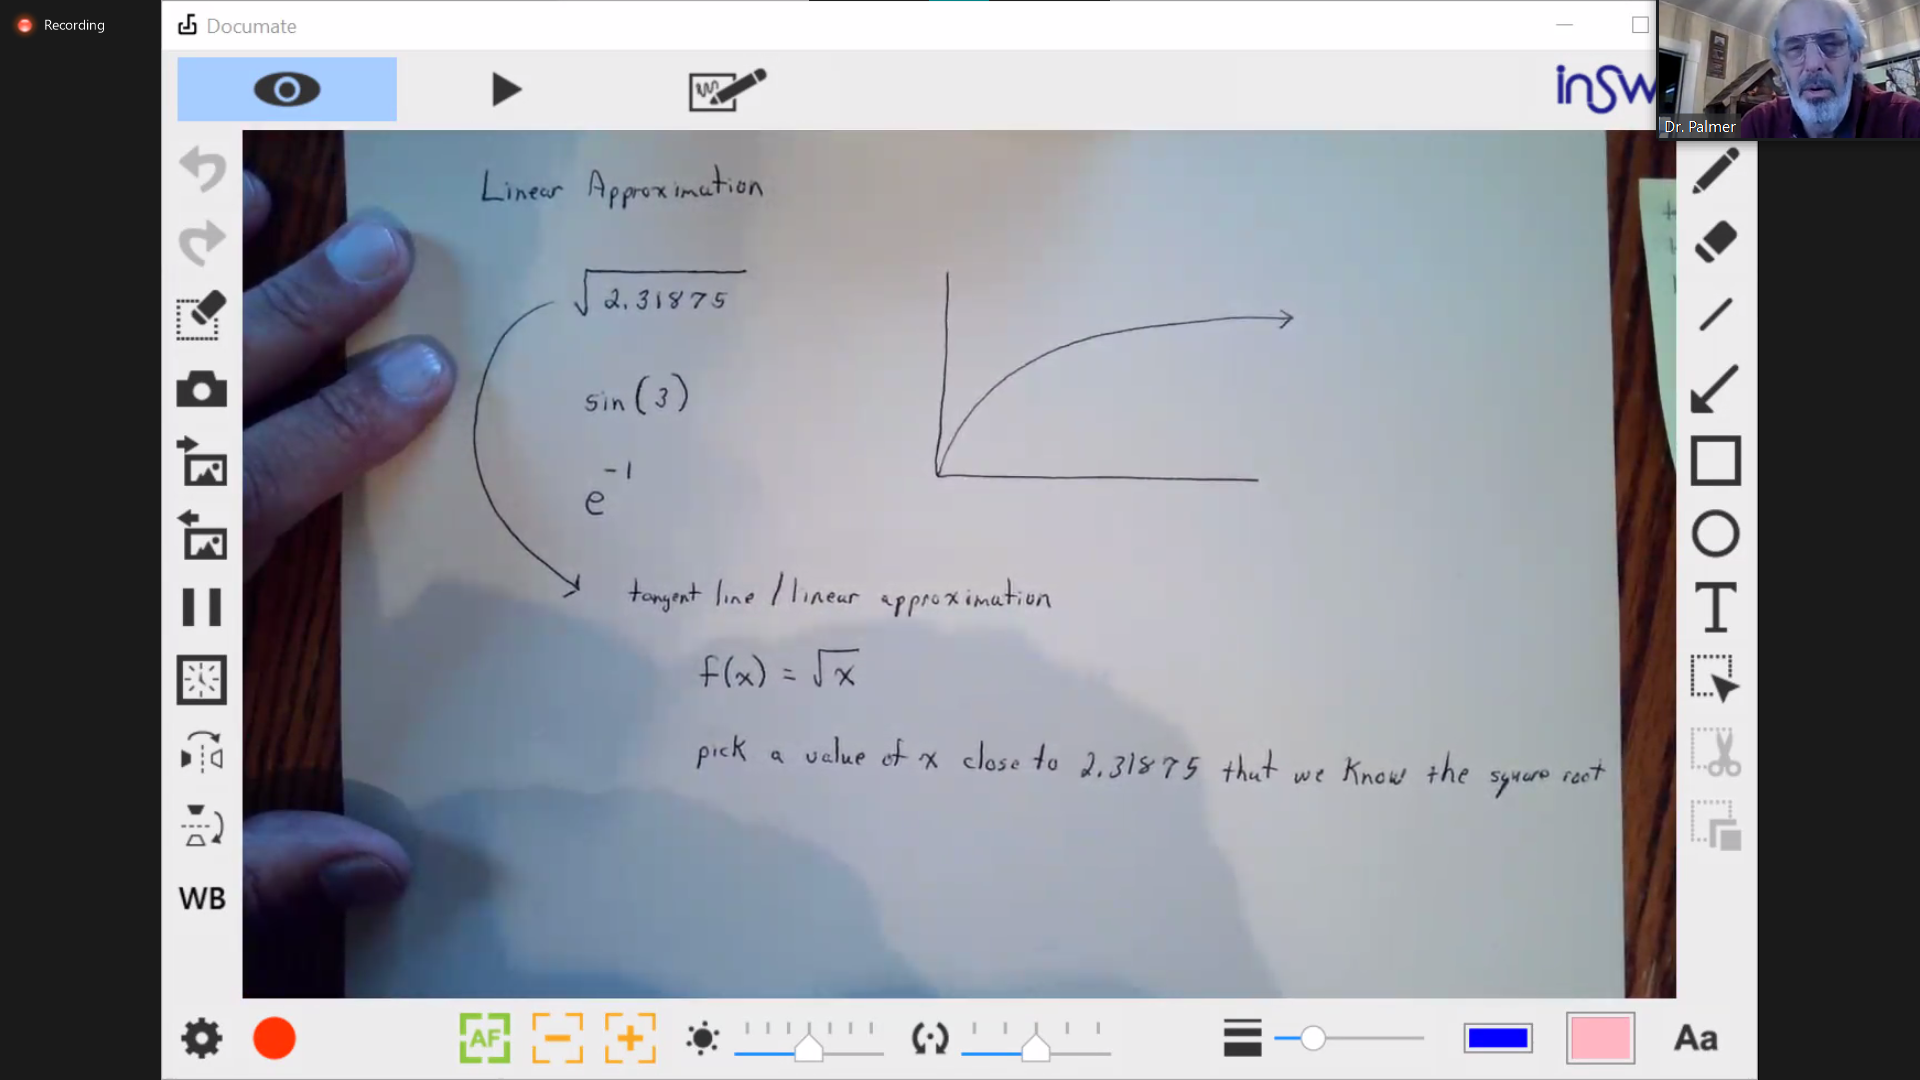 Recording
Documate
inSw
Dr. Palmer
Linear Approximation
√2.31875
sin(3)
e⁻¹
tangent line / linear approximation
f(x) = √x
pick a value of x close to 2.31875 that we know the square root
T
WB
AF
Aa